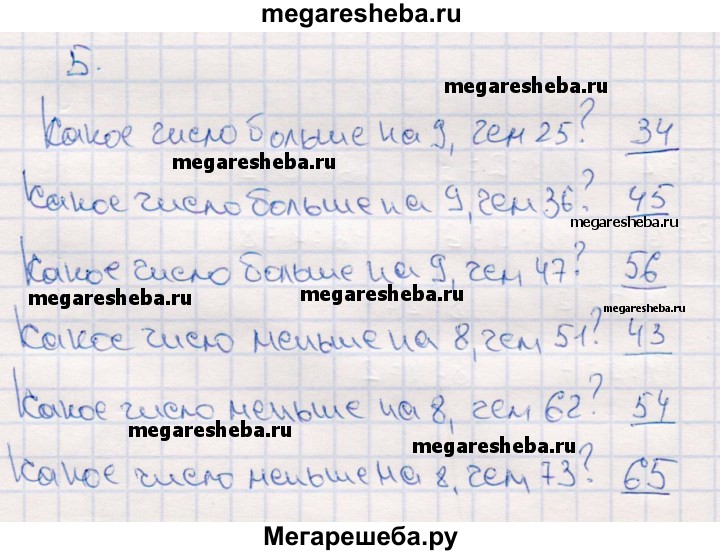 megaresheba.ru
5.
megaresheba.ru
Какое число больше на 9, чем 25? 34
megaresheba.ru
Какое число больше на 9, чем 36? 45
megaresheba.ru
Какое число больше на 9, чем 47? 56
megaresheba.ru megaresheba.ru megaresheba.ru
Какое число меньше на 8, чем 51? 43
Какое число меньше на 8, чем 62? 54
megaresheba.ru megaresheba.ru
Какое число меньше на 8, чем 73? 65
Мегарешеба.ру